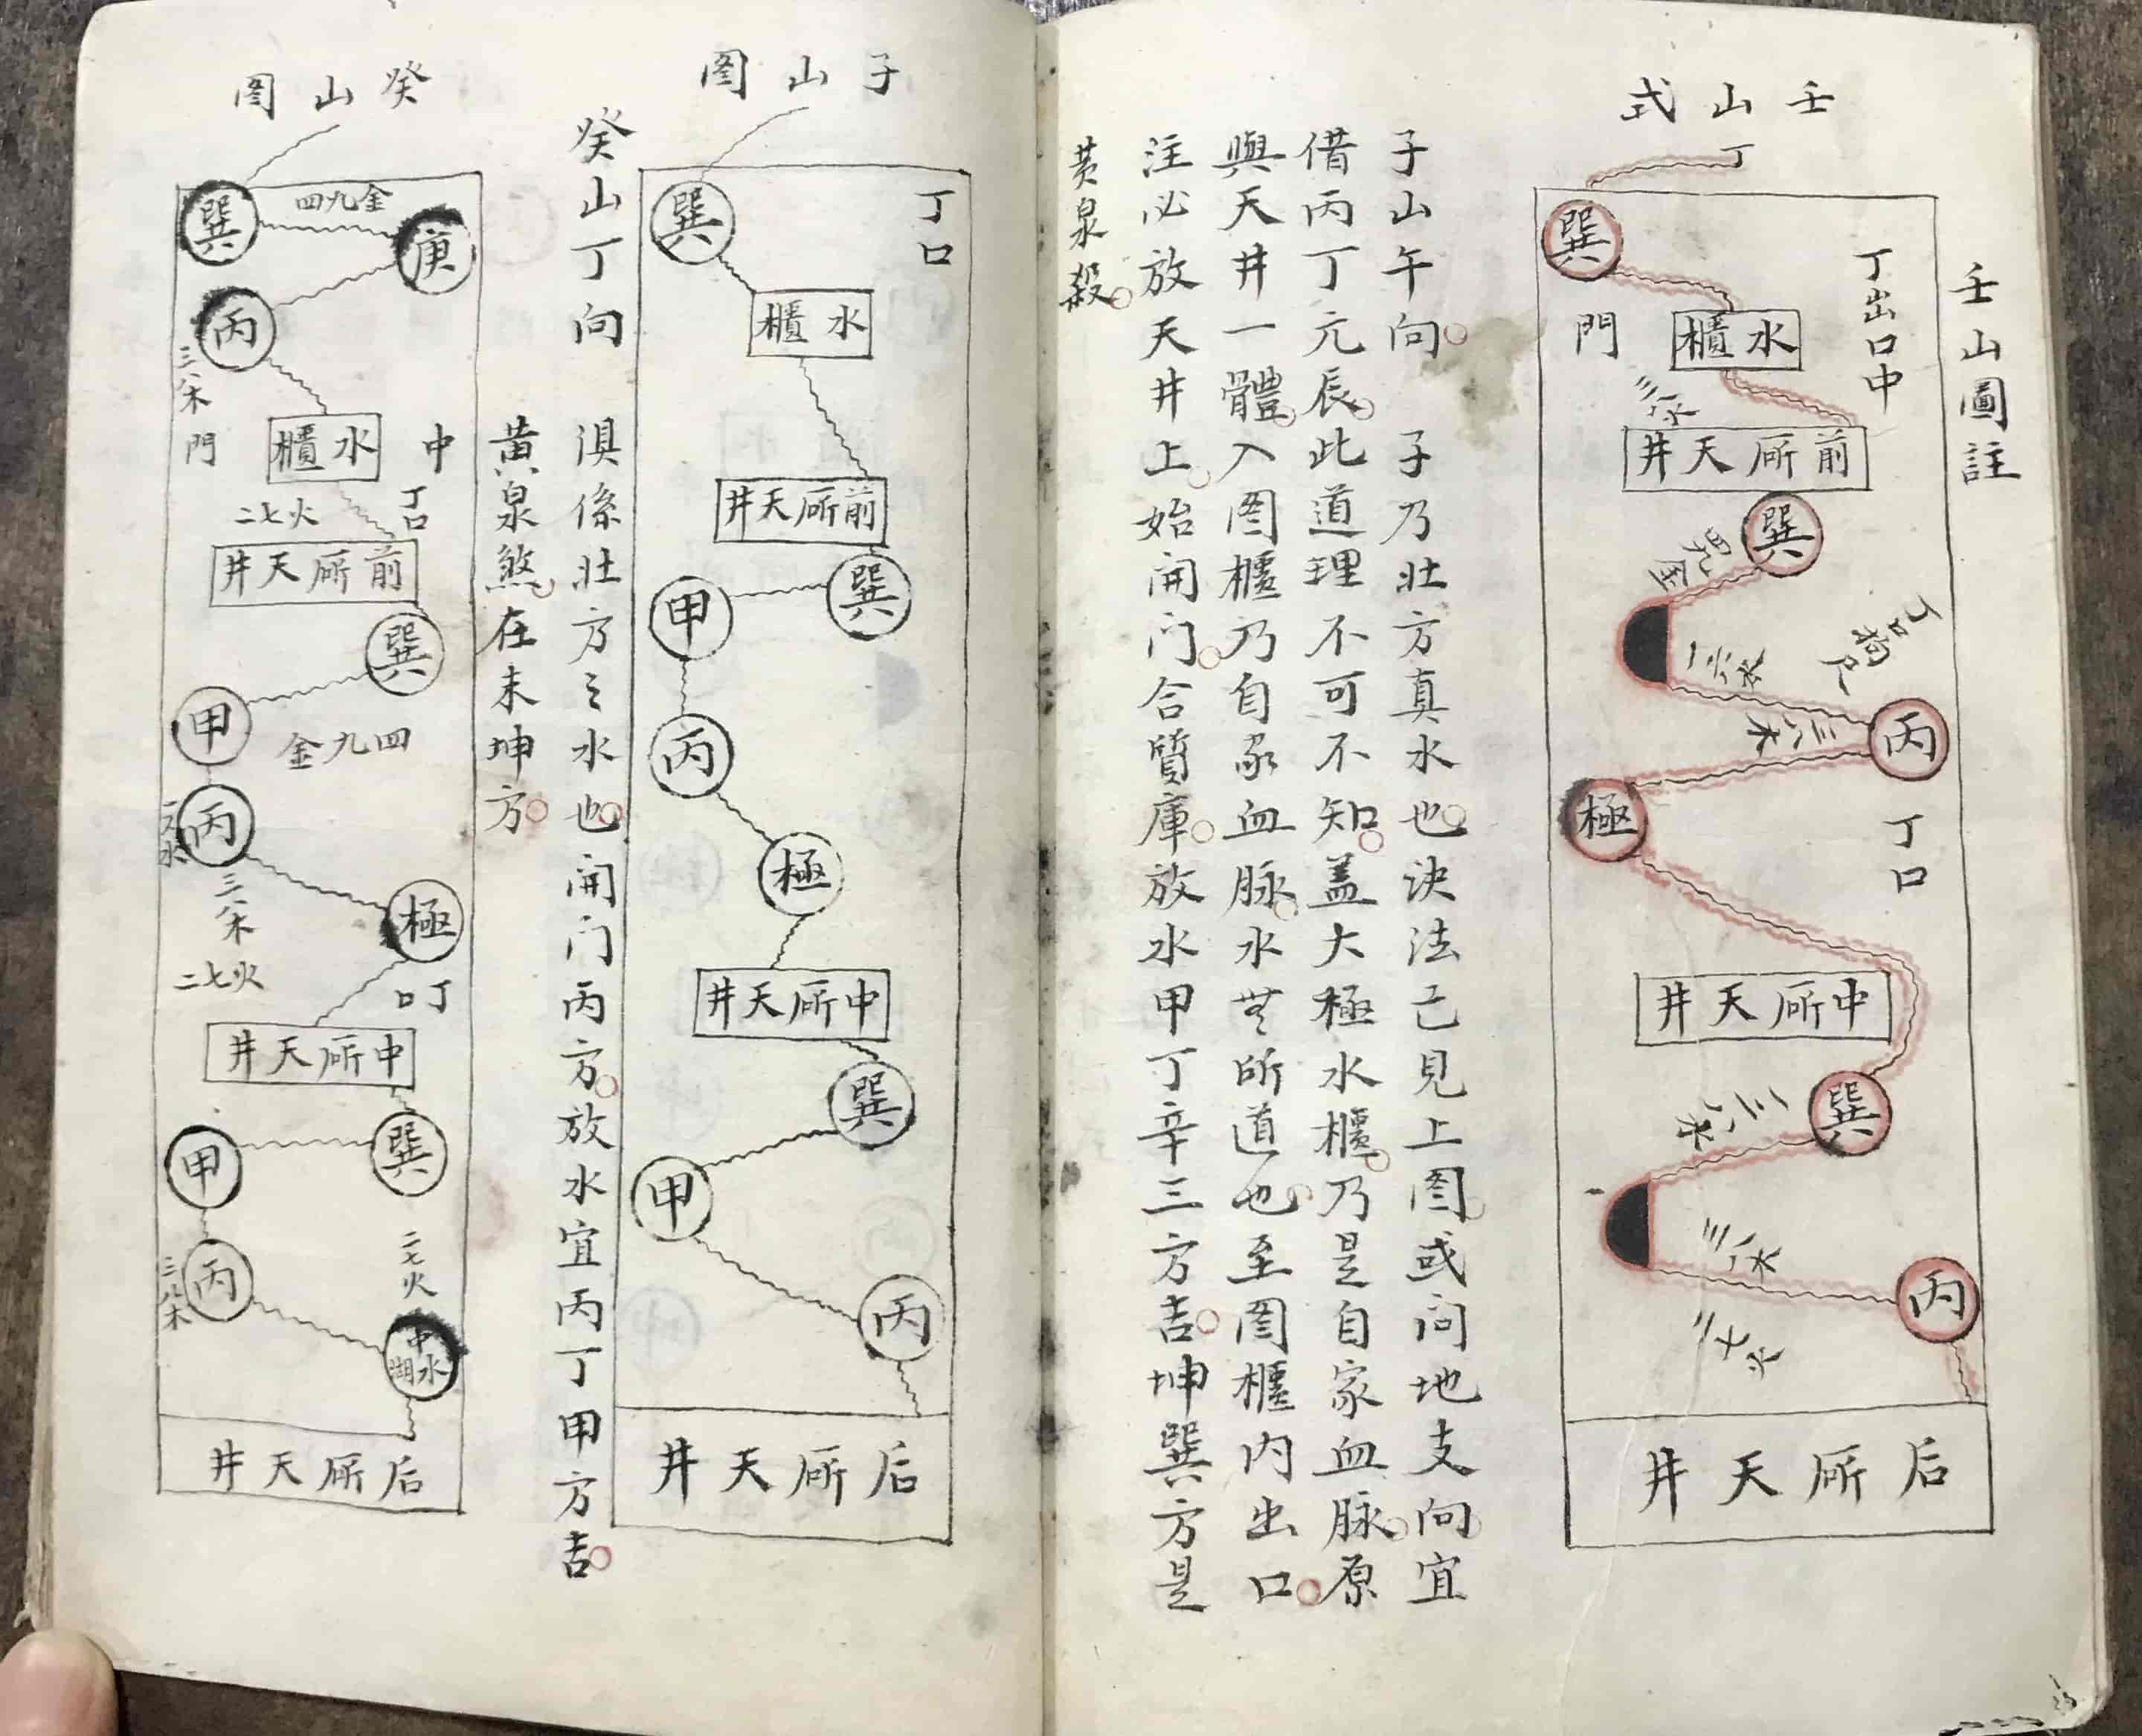 壬山圖註
壬山式
丁
巽
丁出口中
門
水櫃
三八木
前所天井
巽
四九金
一六水
丁口
三八木
丙
極
丁口
中所天井
巽
三八木
三八木
二七火
丙
后所天井
子山午向 子乃壯方真水也決法已見上图或问地支向宜
借丙丁元辰此道理不可不知蓋大極水櫃乃是自家血脉原
與天井一體入图櫃乃自家血脉水无所道也至图櫃内出口
注必放天井上始開门合質庫放水甲丁辛三方吉坤巽方是
黄泉殺
子山图
丁口
巽
水櫃
前所天井
巽
甲
丙
極
中所天井
巽
甲
丙
后所天井
癸山丁向 俱係壯方之水也開门丙方放水宜丙丁甲方吉
黄泉煞在未坤方
癸山图
巽
四九金
庚
丙
三八木
門
水櫃
中
丁口
二七火
前所天井
巽
甲
四九金
丙
一六水
三八木
極
二七火
丁口
中所天井
巽
甲
二七火
丙
三八木
中水
后所天井